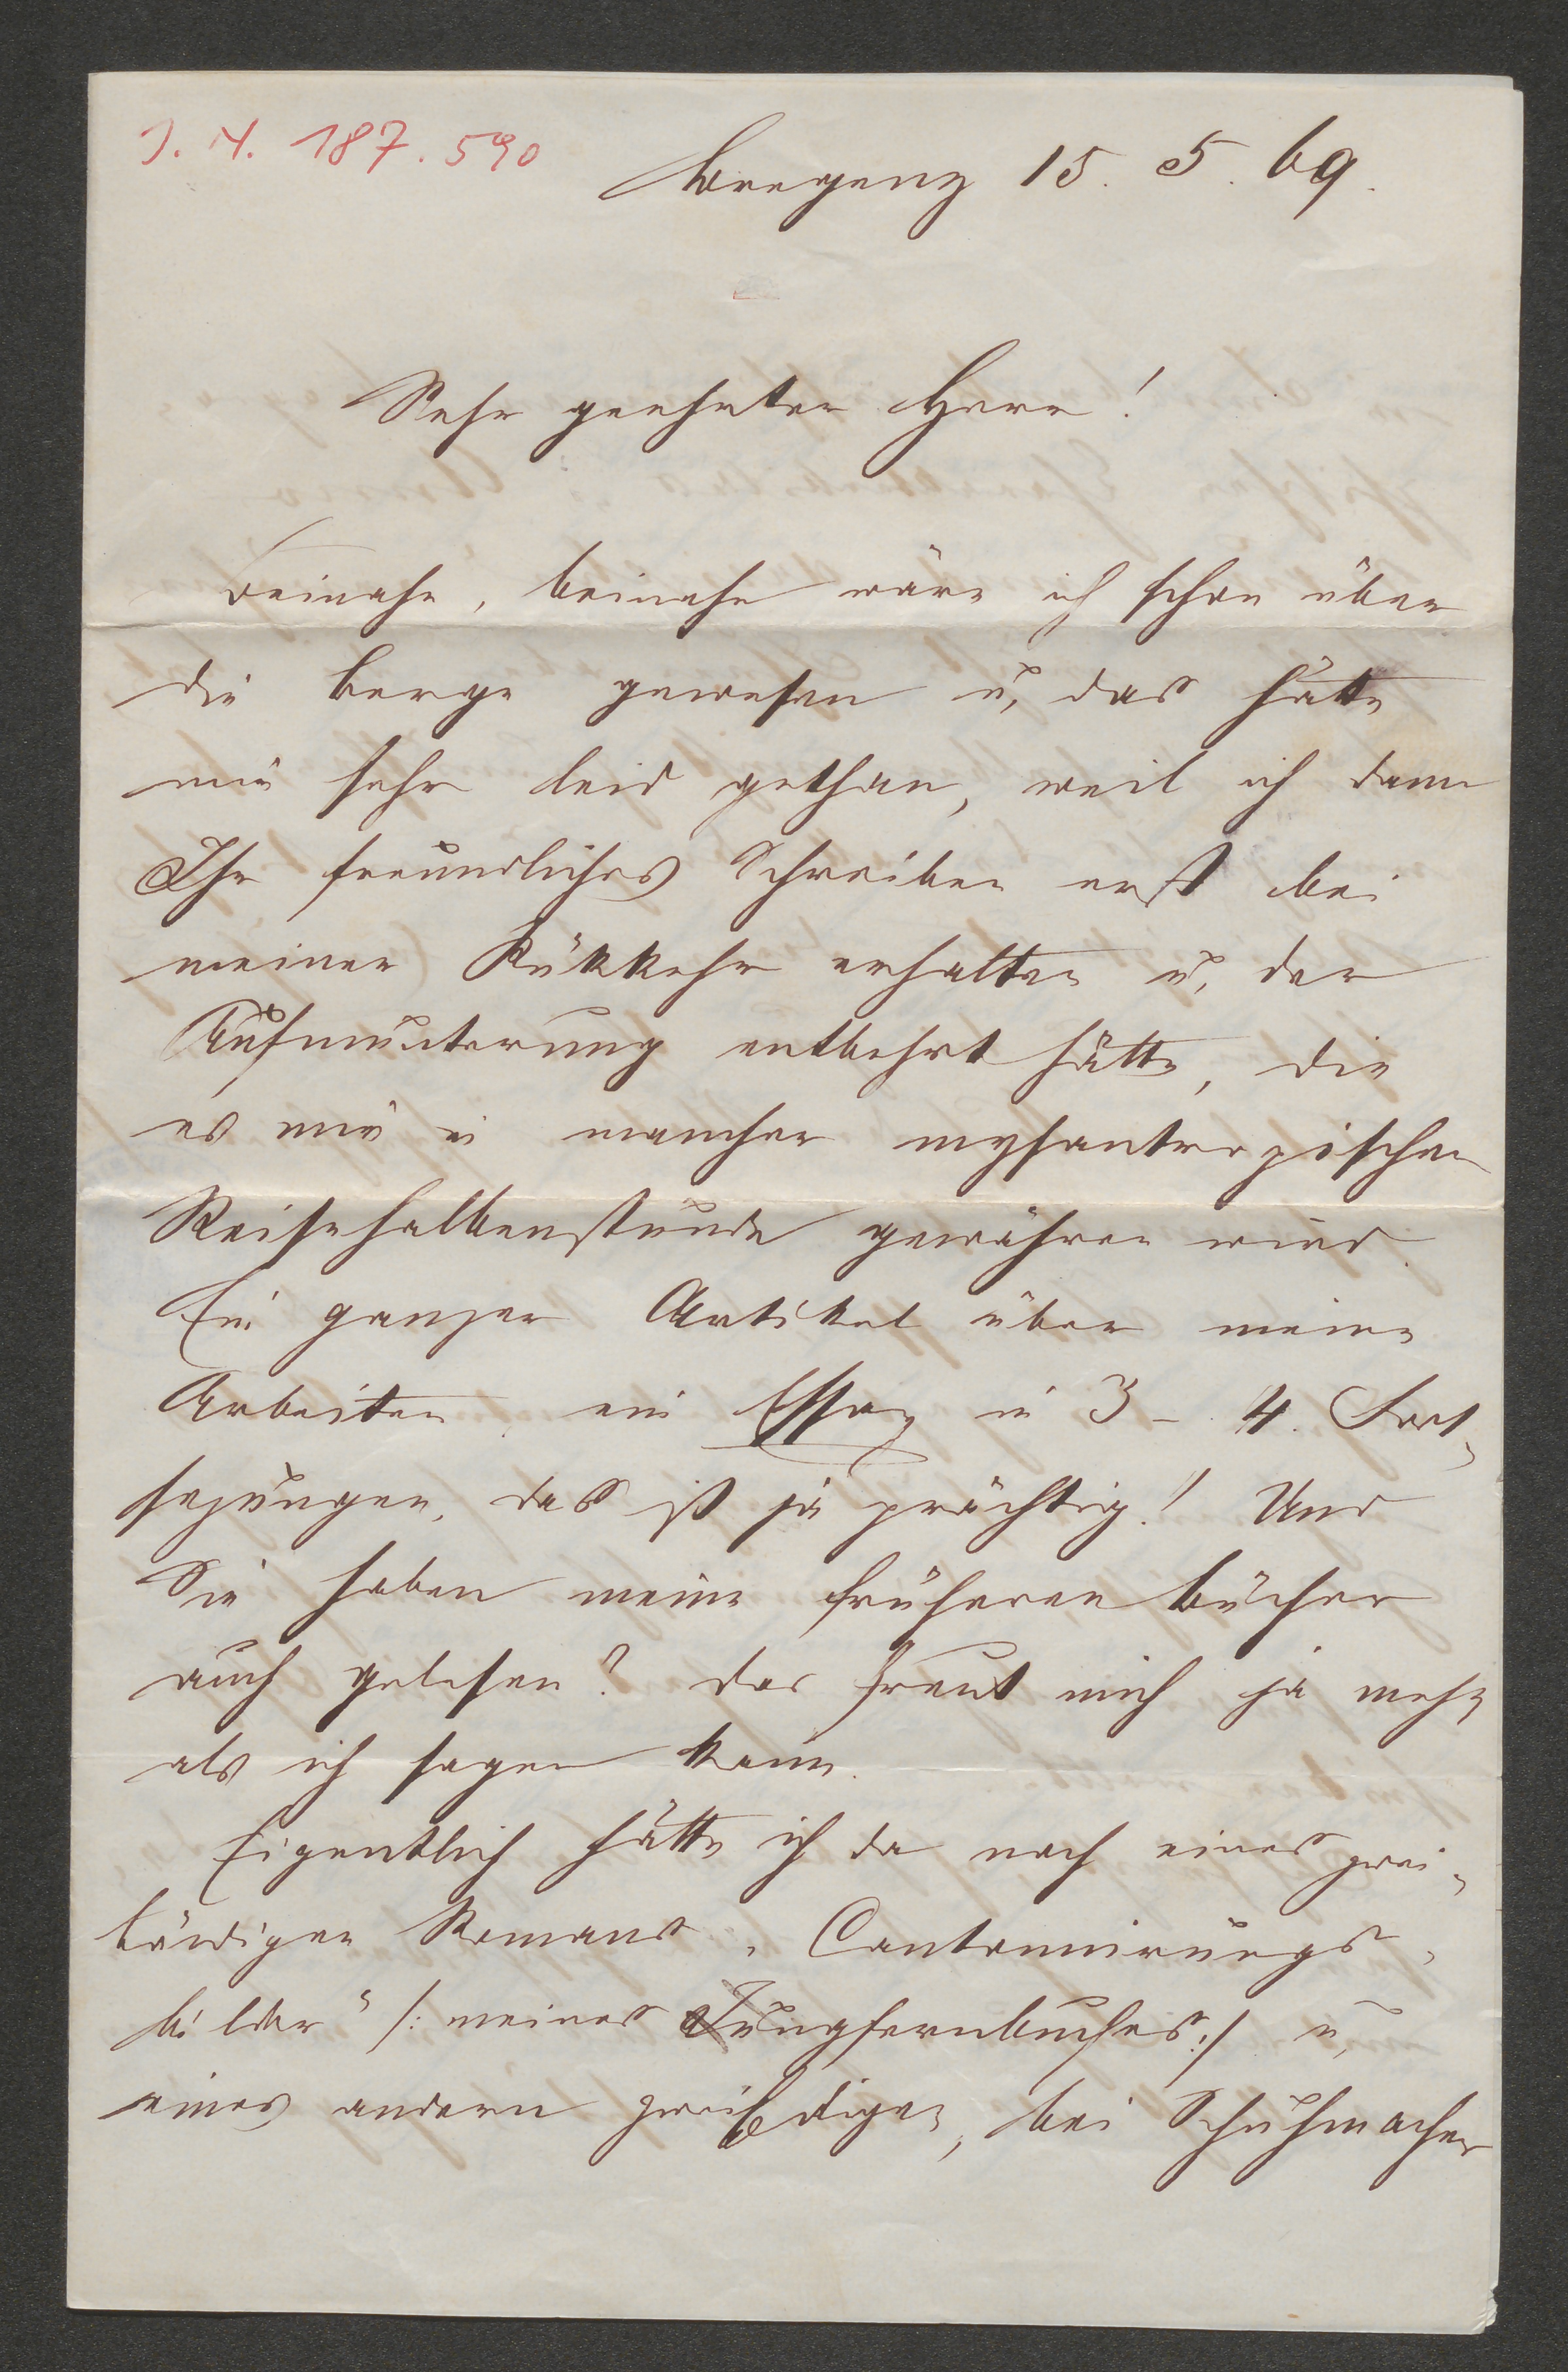 I. N. 187.590
Bregenz 15. 5. 69.
Sehr geehrter Herr!
Beinahe, beinahe wäre ich schon über
die Berge gewesen u, das hätte
mir sehr leid gethan, weil ich dann
Ihr freundliches Schreiben erst bei
meiner Rükkehr erhalten u, der
Aufmunterung entbehrt hätte, die
es mir in mancher mysantropischen
Reisehalbenstunde gewähren wird.
Ein ganzer Artikel über meine
Arbeiten, ein Essay in 3 - 4. Fort„
sezungen, das ist ja prächtig! Und
Sie haben meine früheren Bücher
auch gelesen? das freut mich ja mehr
als ich sagen kann.
Eigentlich hätte ich da noch eines zwei„
bändigen Romans „Cantonnirungs„
bilder“ /: meines Jungfernbuches :/ u,
eines andern zweibdigen, bei Schuhmacher